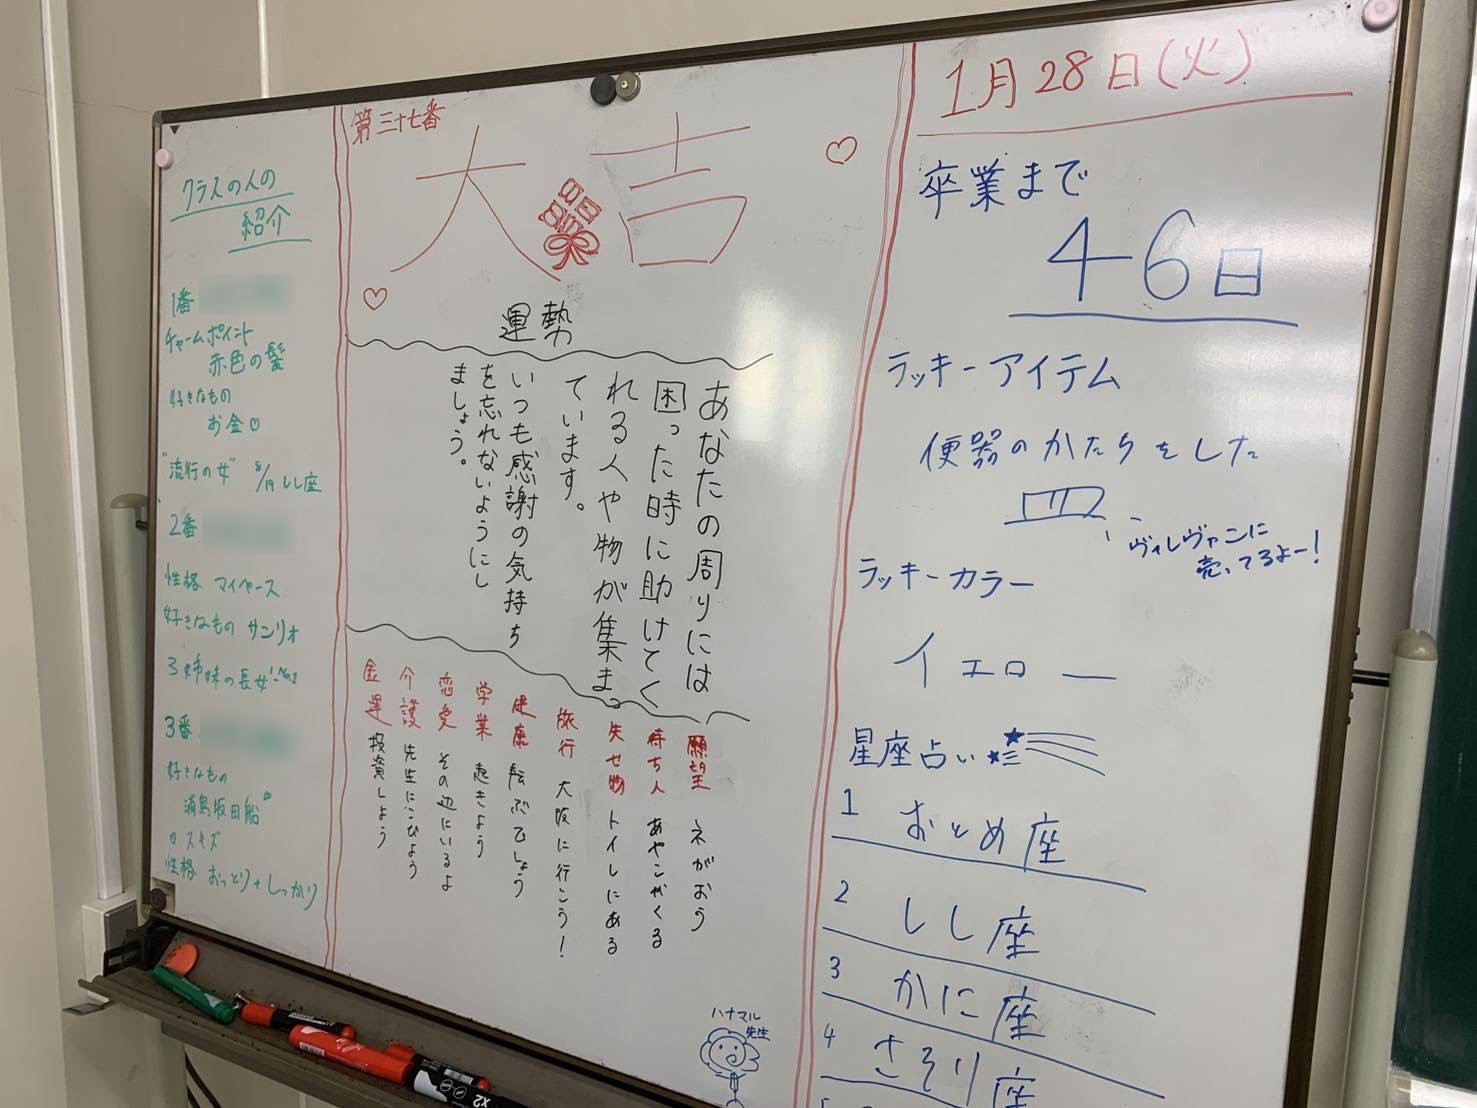 クラスの人の
紹介
1番
チャームポイント
赤色の髪
好きなもの
お金♡
"流行の女" 8/19 しし座
2番
性格 マイペース
好きなもの サンリオ
3姉妹の長女
3番
好きなもの
浦島坂田船
カスキズ
性格 おっとり+しっかり
第三十七番
大吉
運勢
あなたの周りには
困った時に助けてく
れる人や物が集まっ
ています。
いつも感謝の気持ち
を忘れないようにし
ましょう。
願望 ネがおう
待ち人 あやこがくる
失せ物 トイレにある
旅行 大阪に行こう!
健康 転ぶでしょう
学業 起きよう
恋愛 その辺にいるよ
介護 先生にこびよう
金運 投資しよう
ハナマル
先生
1月28日(火)
卒業まで
46日
ラッキーアイテム
便器のかたちをした
ヴィレヴァンに
売ってるよー!
ラッキーカラー
イエロー
星座占い
1 おとめ座
2 しし座
3 かに座
4 さそり座